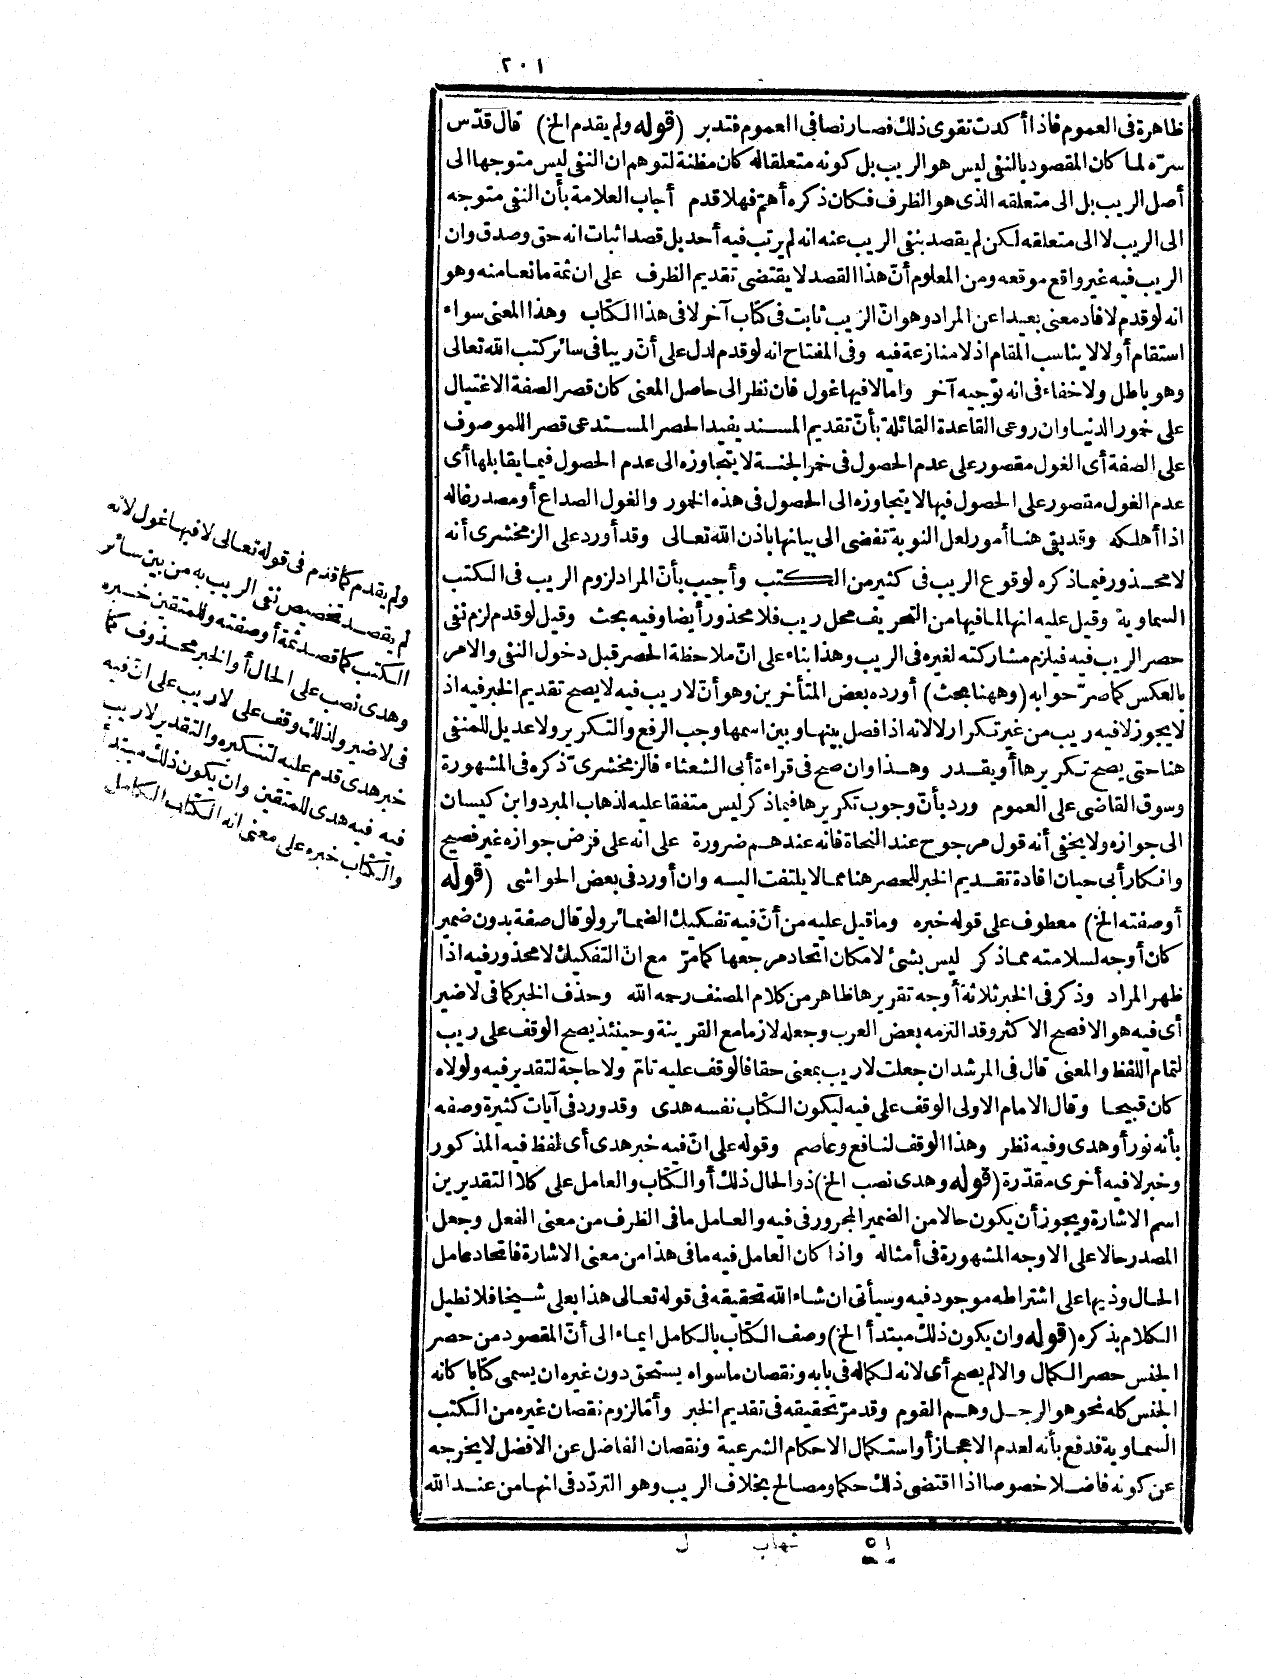 ٢٠١
ظاهرة فى العموم فاذا أكدت تقوى ذلك فصار نصا فى العموم فتدبر (قوله ولم يقدم الخ) قال قدّس
سرّه لما كان المقصود بالنفى ليس هو الريب بل كونه متعلقا له كان مظنة لتوهم ان النفى ليس متوجها الى
أصل الريب بل الى متعلقه الذى هو الظرف فكان ذكره أهمّ فهلا قدم أجاب العلامة بأن النفى متوجه
الى الريب لا الى متعلقه لكن لم يقصد بنفى الريب عنه انه لم يرتب فيه أحد بل قصد اثبات انه حق وصدق وان
الريب فيه غير واقع موقعه ومن المعلوم أنّ هذا القصد لا يقتضى تقديم الظرف على ان ثمة مانعا منه وهو
انه لو قدم لافاد معنى بعيدا عن المراد وهو انّ الريب ثابت فى كتاب آخر لا فى هذا الكتاب وهذا المعنى سواء
استقام أولا لا يناسب المقام اذ لا منازعة فيه وفى المفتاح انه لو قدم لدل على أنّ ريبا فى سائر كتب الله تعالى
وهو باطل ولا خفاء فى انه توجيه آخر واما لا فيها غول فان نظر الى حاصل المعنى كان قصر الصفة الاغتيال
على خمور الدنيا وان روعى القاعدة القائلة بأنّ تقديم المسند يفيد الحصر المستدعى قصرا للموصوف
على الصفة أى الغول مقصور على عدم الحصول فى خمر الجنسة لا يتجاوزه الى عدم الحصول فيما يقابلها أى
عدم الغول مقصور على الحصول فيها لا يتجاوزه الى الحصول فى هذه الخمور والغول الصداع أو مصدر غاله
اذا أهلكه وقد بقى هنا أمور لعل النوبة تفضى الى بيانها باذن الله تعالى وقد أورد على الزمخشرى أنه
لا محذور فيما ذكره لوقوع الريب فى كثير من الكتب وأجيب بأنّ المراد لزوم الريب فى الكتب
السماوية وقيل عليه انها لما فيها من التحريف محل ريب فلا محذور أيضا وفيه بحث وقيل لو قدم لزم نفى
حصر الريب فيه فيلزم مشاركته لغيره فى الريب وهذا بناء على انّ ملاحظة الحصر قبل دخول النفى والامر
بالعكس كما صرّحوا به (وههنا بحث) أورده بعض المتأخرين وهو أنّ لا ريب فيه لا يصح تقديم الخبر فيه اذ
لا يجوز لا فيه ريب من غير تكرار لا لانه اذا فصل بينها وبين اسمها وجب الرفع والتكرير ولا عديل للمنفى
هنا حتى يصح تكريرها أو يقدر وهذا وان صح فى قراءة أبى الشعثاء فالزمخشرىّ ذكره فى المشهورة
وسوق القاضى على العموم ورد بأنّ وجوب تكريرها فيما ذكر ليس متفقا عليه لذهاب المبرد وابن كيسان
الى جوازه ولا يخفى أنه قول مرجوح عند النحاة فانه عندهم ضرورة على انه على فرض جوازه غير فصيح
وانكار أبى حيان افادة تقديم الخبر للحصر هنا مما لا يلتفت اليه وان أورد فى بعض الحواشى (قوله
أو صفته الخ) معطوف على قوله خبره وما قيل عليه من أنّ فيه تفكيك الضمائر ولو قال صفة بدون ضمير
كان أوجه لسلامته مما ذكر ليس بشئ لامكان اتحاد مرجعها كما مرّ مع انّ التفكيك لا محذور فيه اذا
ظهر المراد وذكر فى الخبر ثلاثة أوجه تقريرها ظاهر من كلام المصنف رحمه الله وحذف الخبر كما فى لا ضير
أى فيه هو الافصح الاكثر وقد التزمه بعض العرب وجعله لازما مع القرينة وحينئذ يصح الوقف على ريب
لتمام اللفظ والمعنى قال فى المرشد ان جعلت لا ريب بمعنى حقا فالوقف عليه تامّ ولا حاجة لتقدير فيه ولولاه
كان قبيحا وقال الامام الاولى الوقف على فيه ليكون الكتاب نفسه هدى وقد ورد فى آيات كثيرة وصفه
بأنه نور أو هدى وفيه نظر وهذا الوقف لنافع وعاصم وقوله على انّ فيه خبر هدى أى لفظ فيه المذكور
وخبر لا فيه أخرى مقدّرة (قوله وهدى نصب الخ) ذو الحال ذلك أو الكتاب والعامل على كلا التقديرين
اسم الاشارة ويجوز أن يكون حالا من الضمير المجرور فى فيه والعامل ما فى الظرف من معنى الفعل وجعل
المصدر حالا على الاوجه المشهورة فى أمثاله واذا كان العامل فيه ما فى هذا من معنى الاشارة فاتحاد عامل
الحال وذيها على اشتراطه موجود فيه وسيأتى ان شاء الله تحقيقه فى قوله تعالى هذا بعلى شيخا فلا نطيل
الكلام بذكره (قوله وان يكون ذلك مبتدأ الخ) وصف الكتاب بالكامل ايماء الى أنّ المقصود من حصر
الجنس حصر الكمال والا لم يصح أى لانه لكماله فى بابه ونقصان ما سواه يستحق دون غيره ان يسمى كتابا كانه
الجنس كله نحو هو الرجل وهم القوم وقد مرّ تحقيقه فى تقديم الخبر وأمّا لزوم نقصان غيره من الكتب
السماوية فدفع بأنه لعدم الاعجاز أو استكمال الاحكام الشرعية ونقصان الفاضل عن الافضل لا يخرجه
عن كونه فاضلا خصوصا اذا اقتضى ذلك حكم ومصالح بخلاف الريب وهو التردّد فى انها من عند الله
ولم يقدم كما قدم فى قوله تعالى لا فيها غول لانه
لم يقصد تخصيص نفى الريب به من بين سائر
الكتب كما قصد ثمة أو صفته وللمتقين خبره
وهدى نصب على الحال أو الخبر محذوف كما
فى لا ضير ولذلك وقف على لا ريب على انّ فيه
خبر هدى قدم عليه لتنكيره والتقدير لا ريب
فيه فيه هدى للمتقين وان يكون ذلك مبتدأ
والكتاب خبره على معنى انه الكتاب الكامل
٥١ شهاب ل